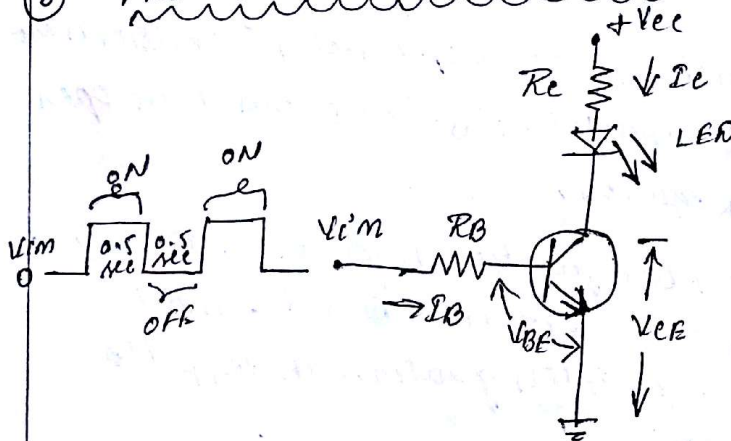 +Vcc
Rc
Ic
LED
ON
ON
Vin
0.5 sec
0.5 sec
OFF
Vin
RB
IB
VBE
VCE